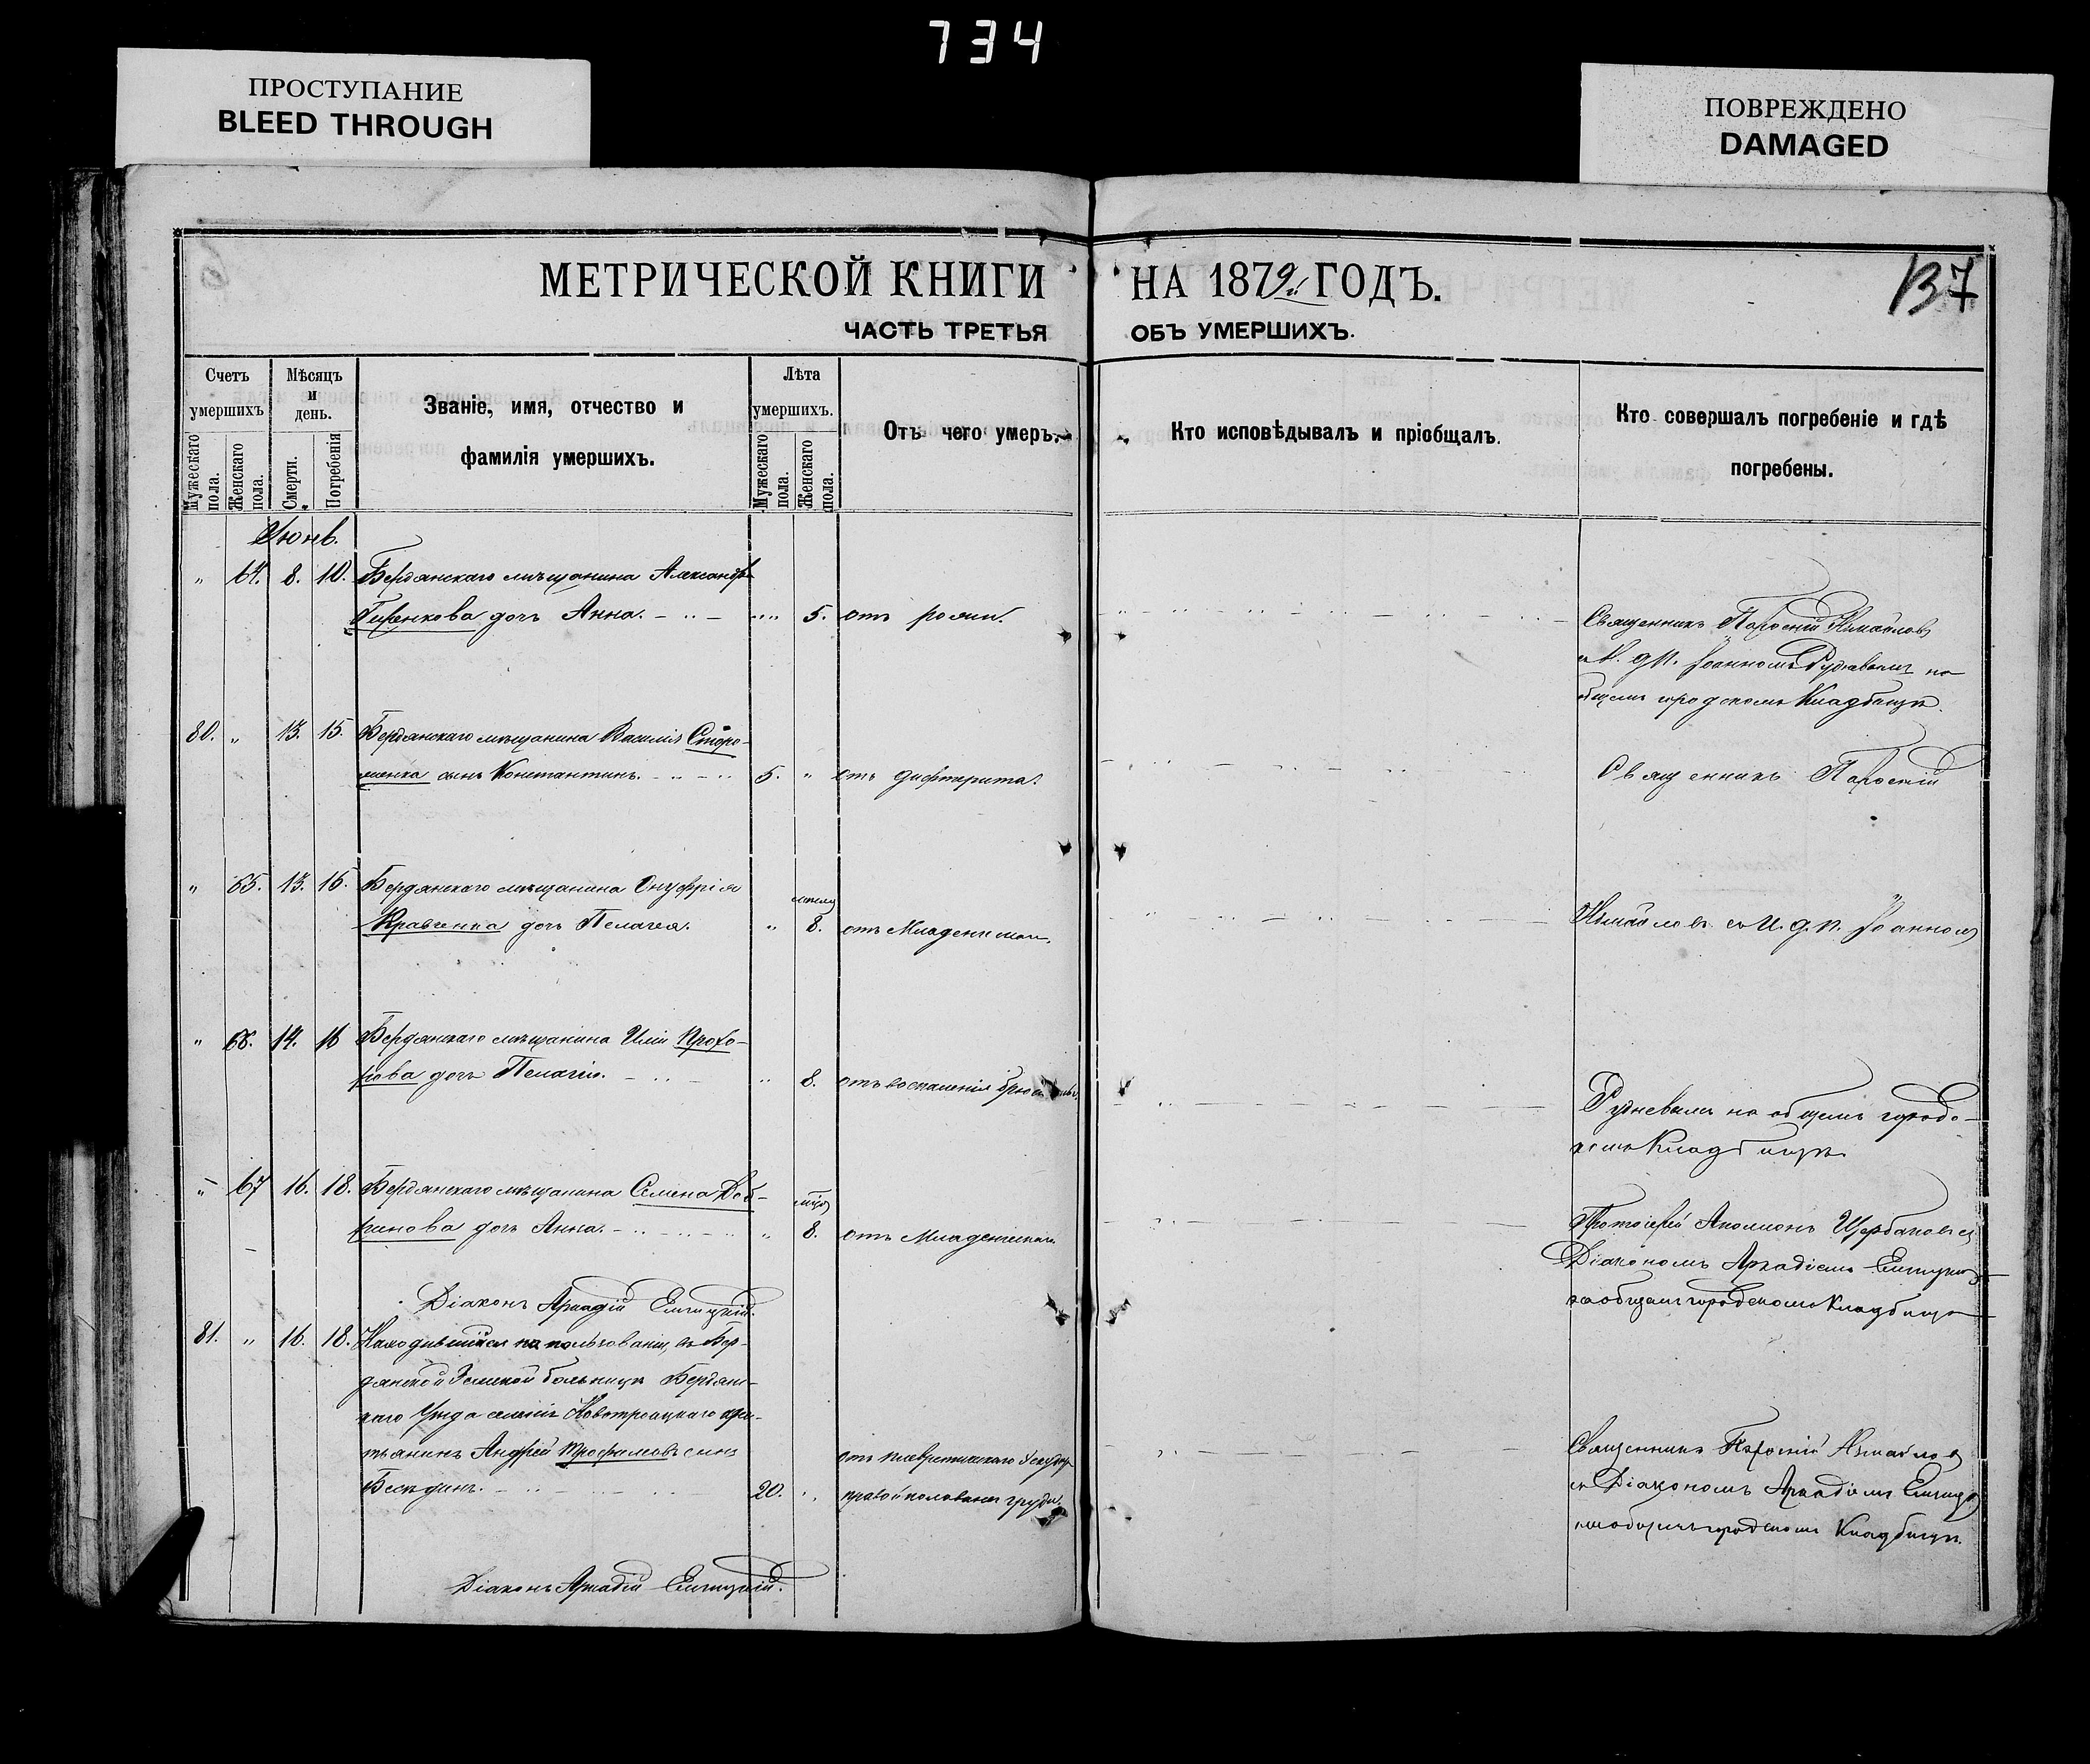 734
ПРОСТУПАНИЕ
BLEED THROUGH
ПОВРЕЖДЕНО
DAMAGED
МЕТРИЧЕСКОЙ КНИГИ НА 1879 ГОДЪ.
137
ЧАСТЬ ТРЕТЬЯ ОБЪ УМЕРШИХЪ.
Счетъ умершихъ
Мужескаго пола.
Женскаго пола.
Мѣсяцъ и день.
Смерти.
Погребенія
Званіе, имя, отчество и
фамилія умершихъ.
Лѣта умершихъ.
Мужескаго пола.
Женскаго пола.
Отъ чего умеръ.
Кто исповѣдывалъ и пріобщалъ.
Кто совершалъ погребеніе и гдѣ
погребены.
Іюнь.
" 64. 8. 10. Бердянскаго мѣщанина Александра
дочь Анна. 5. отъ рожи.
Священникъ Парѳеній Измайловъ
съ И. д. п. Іоанномъ Рудневымъ на
общемъ городскомъ Кладбищѣ.
80. " 13. 15. Бердянскаго мѣщанина Василія Сторо-
женка сынъ Константинъ. 5. " отъ дифтерита.
Священникъ Парѳеній
" 65. 13. 15. Бердянскаго мѣщанина Онуфрія
Кравченка дочь Пелагея. " 8. отъ Младенческой.
Измайловъ съ И. д. п. Іоанномъ
" 66. 14. 16 Бердянскаго мѣщанина Иліи Прохо-
рова дочь Пелагія. " 8. отъ воспаленія
Рудневымъ на общемъ городс-
комъ Кладбищѣ.
" 67 16. 18. Бердянскаго мѣщанина Семена
дочь Анна. " 8. отъ Младенческой.
Протоіерей Аполлонъ Щербаковъ съ
Діакономъ Аркадіемъ
на общемъ городскомъ Кладбищѣ
Діаконъ Аркадій
81. " 16. 18. Находившійся на пользованіи въ Бер-
дянской Земской больницѣ Бердянс-
каго Уѣзда селенія Новотроицкаго крес-
тьянинъ Андрей Трофимовъ сынъ
Бесѣдинъ. 20. " отъ плевритическаго
правой половины груди.
Священникъ Парѳеній Измайловъ
съ Діакономъ Аркадіемъ
на общемъ городскомъ Кладбищѣ.
Діаконъ Аркадій